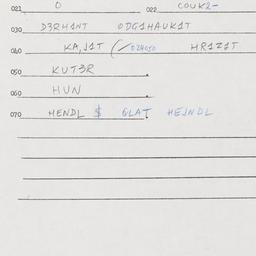 021 0 022 COUK2-
030 D3RH1NT ODG1HAUK1T
040 KA,J1T (/024050 HR1Z1T
050 KUT3R
060 HUN
070 HENDL $ GLAT HEJNDL